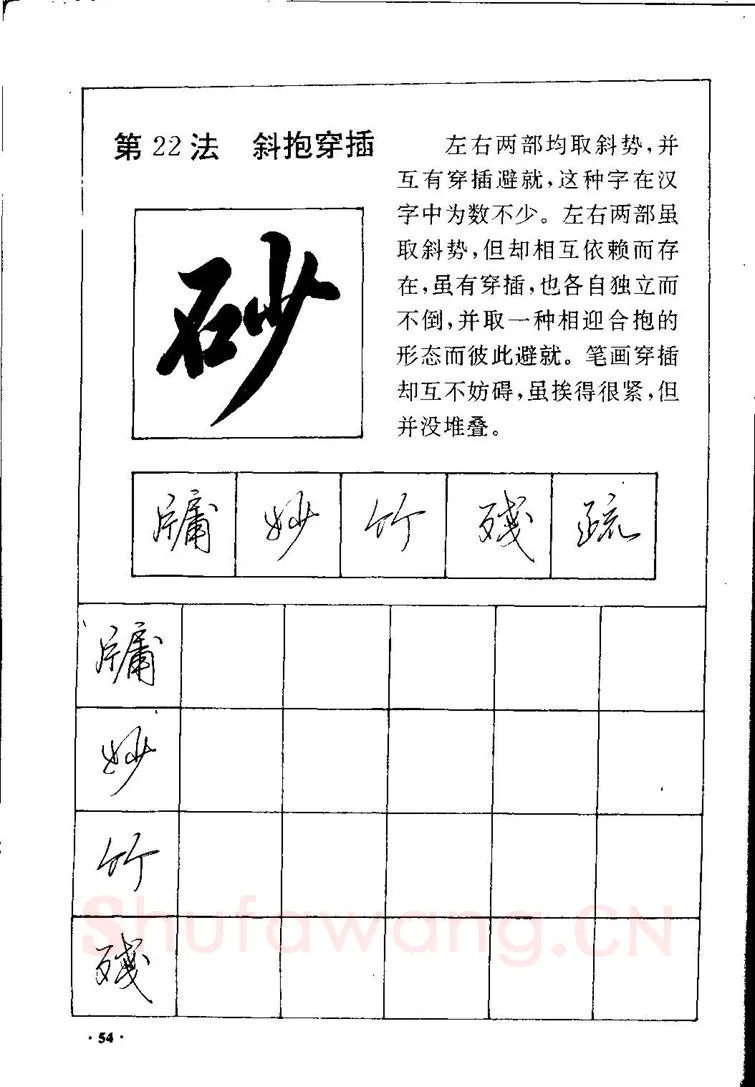 第22法 斜抱穿插
左右两部均取斜势,并
互有穿插避就,这种字在汉
字中为数不少。左右两部虽
取斜势,但却相互依赖而存
在,虽有穿插,也各自独立而
不倒,并取一种相迎合抱的
形态而彼此避就。笔画穿插
却互不妨碍,虽挨得很紧,但
并没堆叠。
砂
牗 妙 竹 残 疏
牗
妙
竹
残
Shufawang.CN
·54·